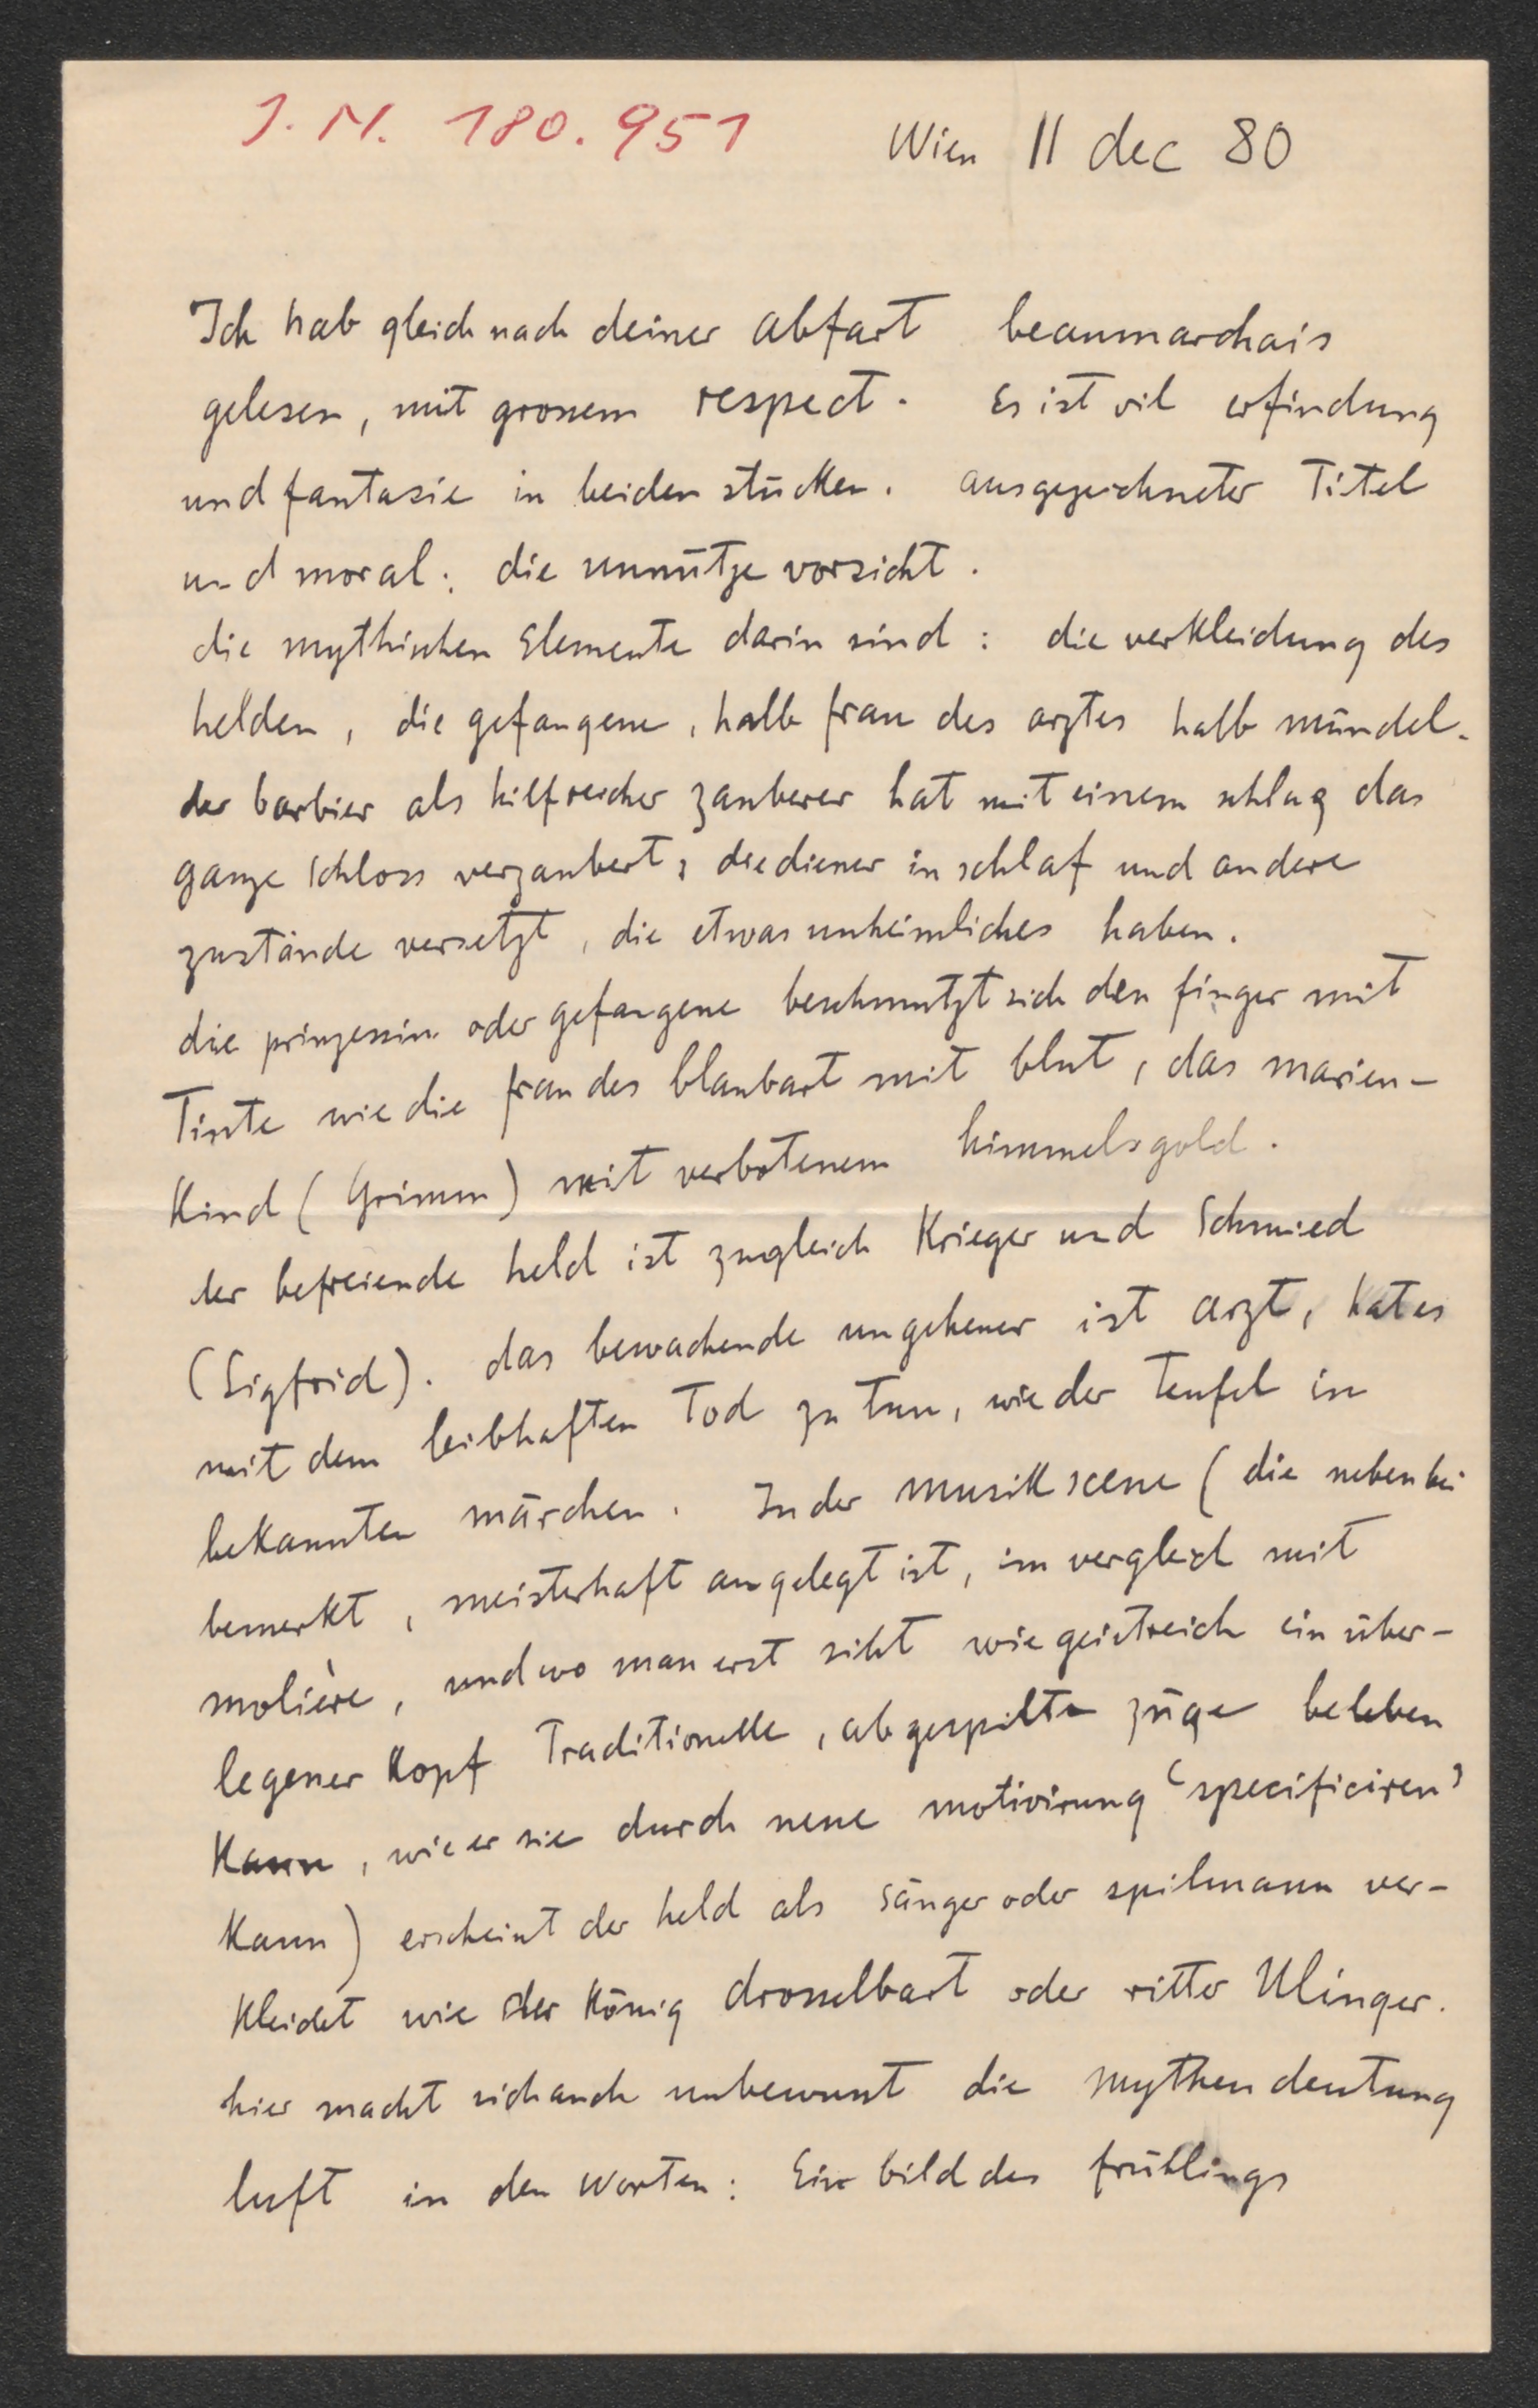 J. N. 180.951
Wien 11 dec 80
Ich hab gleich nach deiner abfart beaumarchais
gelesen, mit grossem respect. Es ist vil erfindung
und fantasie in beiden stücken. ausgezeichneter Titel
und moral: die unnütze vorsicht.
die mythischen Elemente darin sind: die verkleidung des
helden, die gefangene, halb frau des arztes halb mündel.
der barbier als hilfreicher zauberer hat mit einem schlag das
ganze schloss verzaubert, die diener in schlaf und andere
zustände versetzt, die etwas unheimliches haben.
die prinzessin oder gefangene beschmutzt sich den finger mit
Tinte wie die frau des blaubart mit blut, das marien-
kind (Grimm) mit verbotenem himmelsgold.
der befreiende held ist zugleich Krieger und Schmied
(Sigfrid). das bewachende ungeheuer ist arzt, hat es
mit dem leibhaften Tod zu tun, wie der Teufel in
bekannten märchen. In der musikscene (die nebenbei
bemerkt, meisterhaft angelegt ist, im vergleich mit
molière, und wo man erst siht wie geistreich ein über-
legener Kopf Traditionelle, abgespilte züge beleben
kann, wie er sie durch neue motivirung 'specificiren'
kann) erscheint der held als sänger oder spilmann ver-
kleidet wie der König drosselbart oder ritter Ulinger.
hier macht sich auch unbewusst die mythendeutung
luft in den worten: Ein bild des frühlings